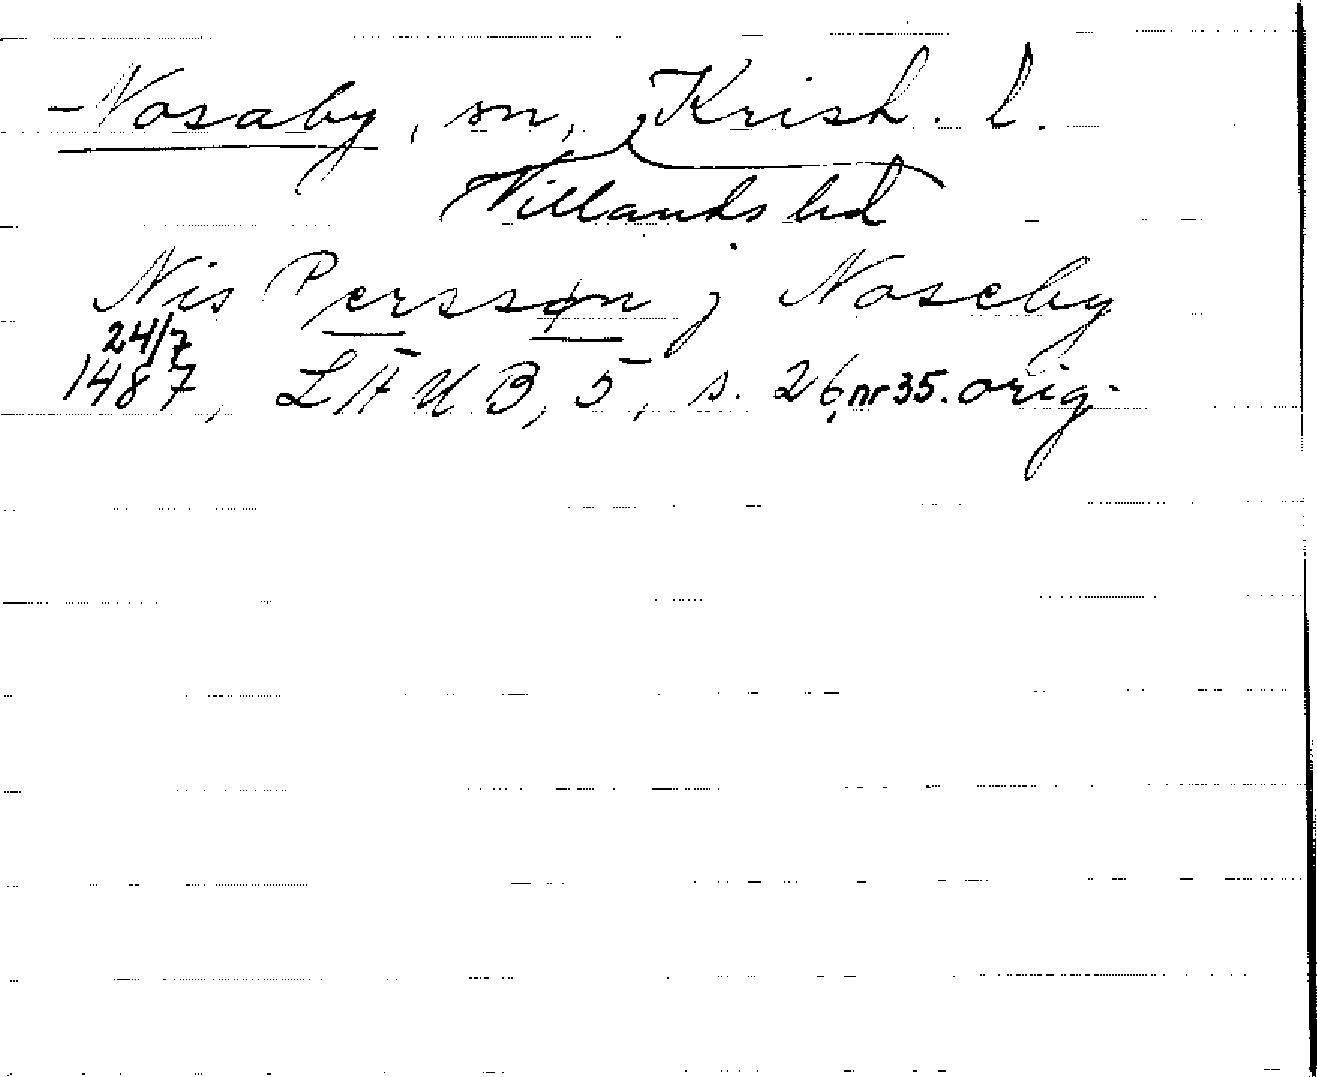 Nosaby, sn, Krist. l.
Villands hd
Nis Perssøn j Noseby
24/7
1487, LÄUB, 5, s. 26, nr 35. orig.